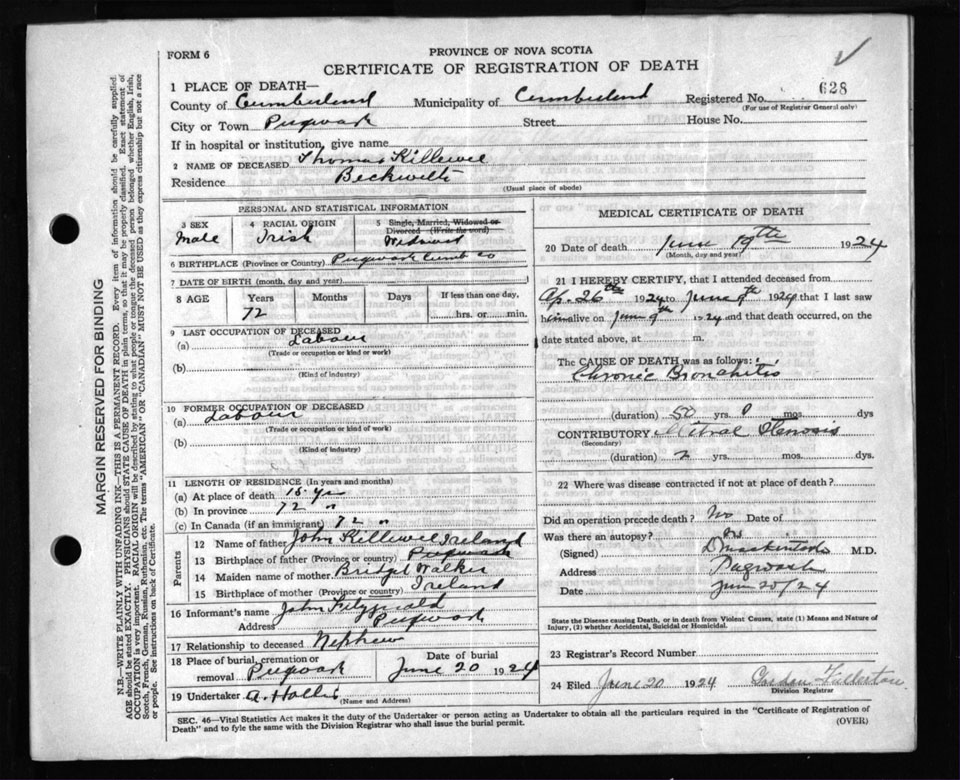 FORM 6
PROVINCE OF NOVA SCOTIA
CERTIFICATE OF REGISTRATION OF DEATH
628
1 PLACE OF DEATH—
County of Cumberland Municipality of Cumberland Registered No.
(For use of Registrar General only)
City or Town Pugwash Street House No.
If in hospital or institution, give name
2 NAME OF DECEASED Thomas Killewee
Residence Beckwith
(Usual place of abode)
PERSONAL AND STATISTICAL INFORMATION
3 SEX Male
4 RACIAL ORIGIN Irish
5 Single, Married, Widowed or Divorced (Write the word)
6 BIRTHPLACE (Province or Country) Pugwash Cumb Co
7 DATE OF BIRTH (month, day and year)
8 AGE Years Months Days If less than one day,
72 hrs. or min.
9 LAST OCCUPATION OF DECEASED
(a) Labour
(Trade or occupation or kind or work)
(b)
(Kind of industry)
10 FORMER OCCUPATION OF DECEASED
(a) Labour
(Trade or occupation or kind of work)
(b)
(Kind of industry)
11 LENGTH OF RESIDENCE (In years and months)
(a) At place of death 15 yrs
(b) In province 72 "
(c) In Canada (if an immigrant) 72 "
Parents
12 Name of father John Killewee
13 Birthplace of father (Province or country) Ireland Pugwash
14 Maiden name of mother Bridget Walker
15 Birthplace of mother (Province or country) Ireland
16 Informant's name John Fitzgerald
Address Pugwash
17 Relationship to deceased Nephew
18 Place of burial, cremation or removal Pugwash
Date of burial June 20 1924
19 Undertaker A. Hollis
(Name and Address)
MEDICAL CERTIFICATE OF DEATH
20 Date of death June 19th 1924
(Month, day and year)
21 I HEREBY CERTIFY, that I attended deceased from
Ap. 26th 1924 to June 9th 1924 that I last saw
him alive on June 9th 1924 and that death occurred, on the
date stated above, at m.
The CAUSE OF DEATH was as follows:
Chronic Bronchitis
(duration) 50 yrs. 0 mos. dys
CONTRIBUTORY Mitral Stenosis
(Secondary)
(duration) 2 yrs. mos. dys.
22 Where was disease contracted if not at place of death?
Did an operation precede death? No Date of
Was there an autopsy? No
(Signed) D Mackintosh M.D.
Address Pugwash
Date June 20/24
State the Disease causing Death, or in death from Violent Causes, state (1) Means and Nature of
Injury, (2) whether Accidental, Suicidal or Homicidal.
23 Registrar's Record Number
24 Filed June 20 1924 Fullerton
Division Registrar
SEC. 46—Vital Statistics Act makes it the duty of the Undertaker or person acting as Undertaker to obtain all the particulars required in the "Certificate of Registration of
Death" and to fyle the same with the Division Registrar who shall issue the burial permit.
(OVER)
MARGIN RESERVED FOR BINDING
N.B.—WRITE PLAINLY WITH UNFADING INK—THIS IS A PERMANENT RECORD. Every item of information should be carefully supplied.
AGE should be stated EXACTLY. PHYSICIANS should STATE CAUSE OF DEATH in plain terms, so that it may be properly classified. Exact statement of
OCCUPATION is very important. RACIAL ORIGIN will be described by stating to what people or tongue the deceased person belonged whether English, Irish,
Scotch, French, German, Russian, Ruthenian, etc. The terms "AMERICAN" OR "CANADIAN" MUST NOT BE USED as they express citizenship but not a race
or people. See instructions on back of Certificate.